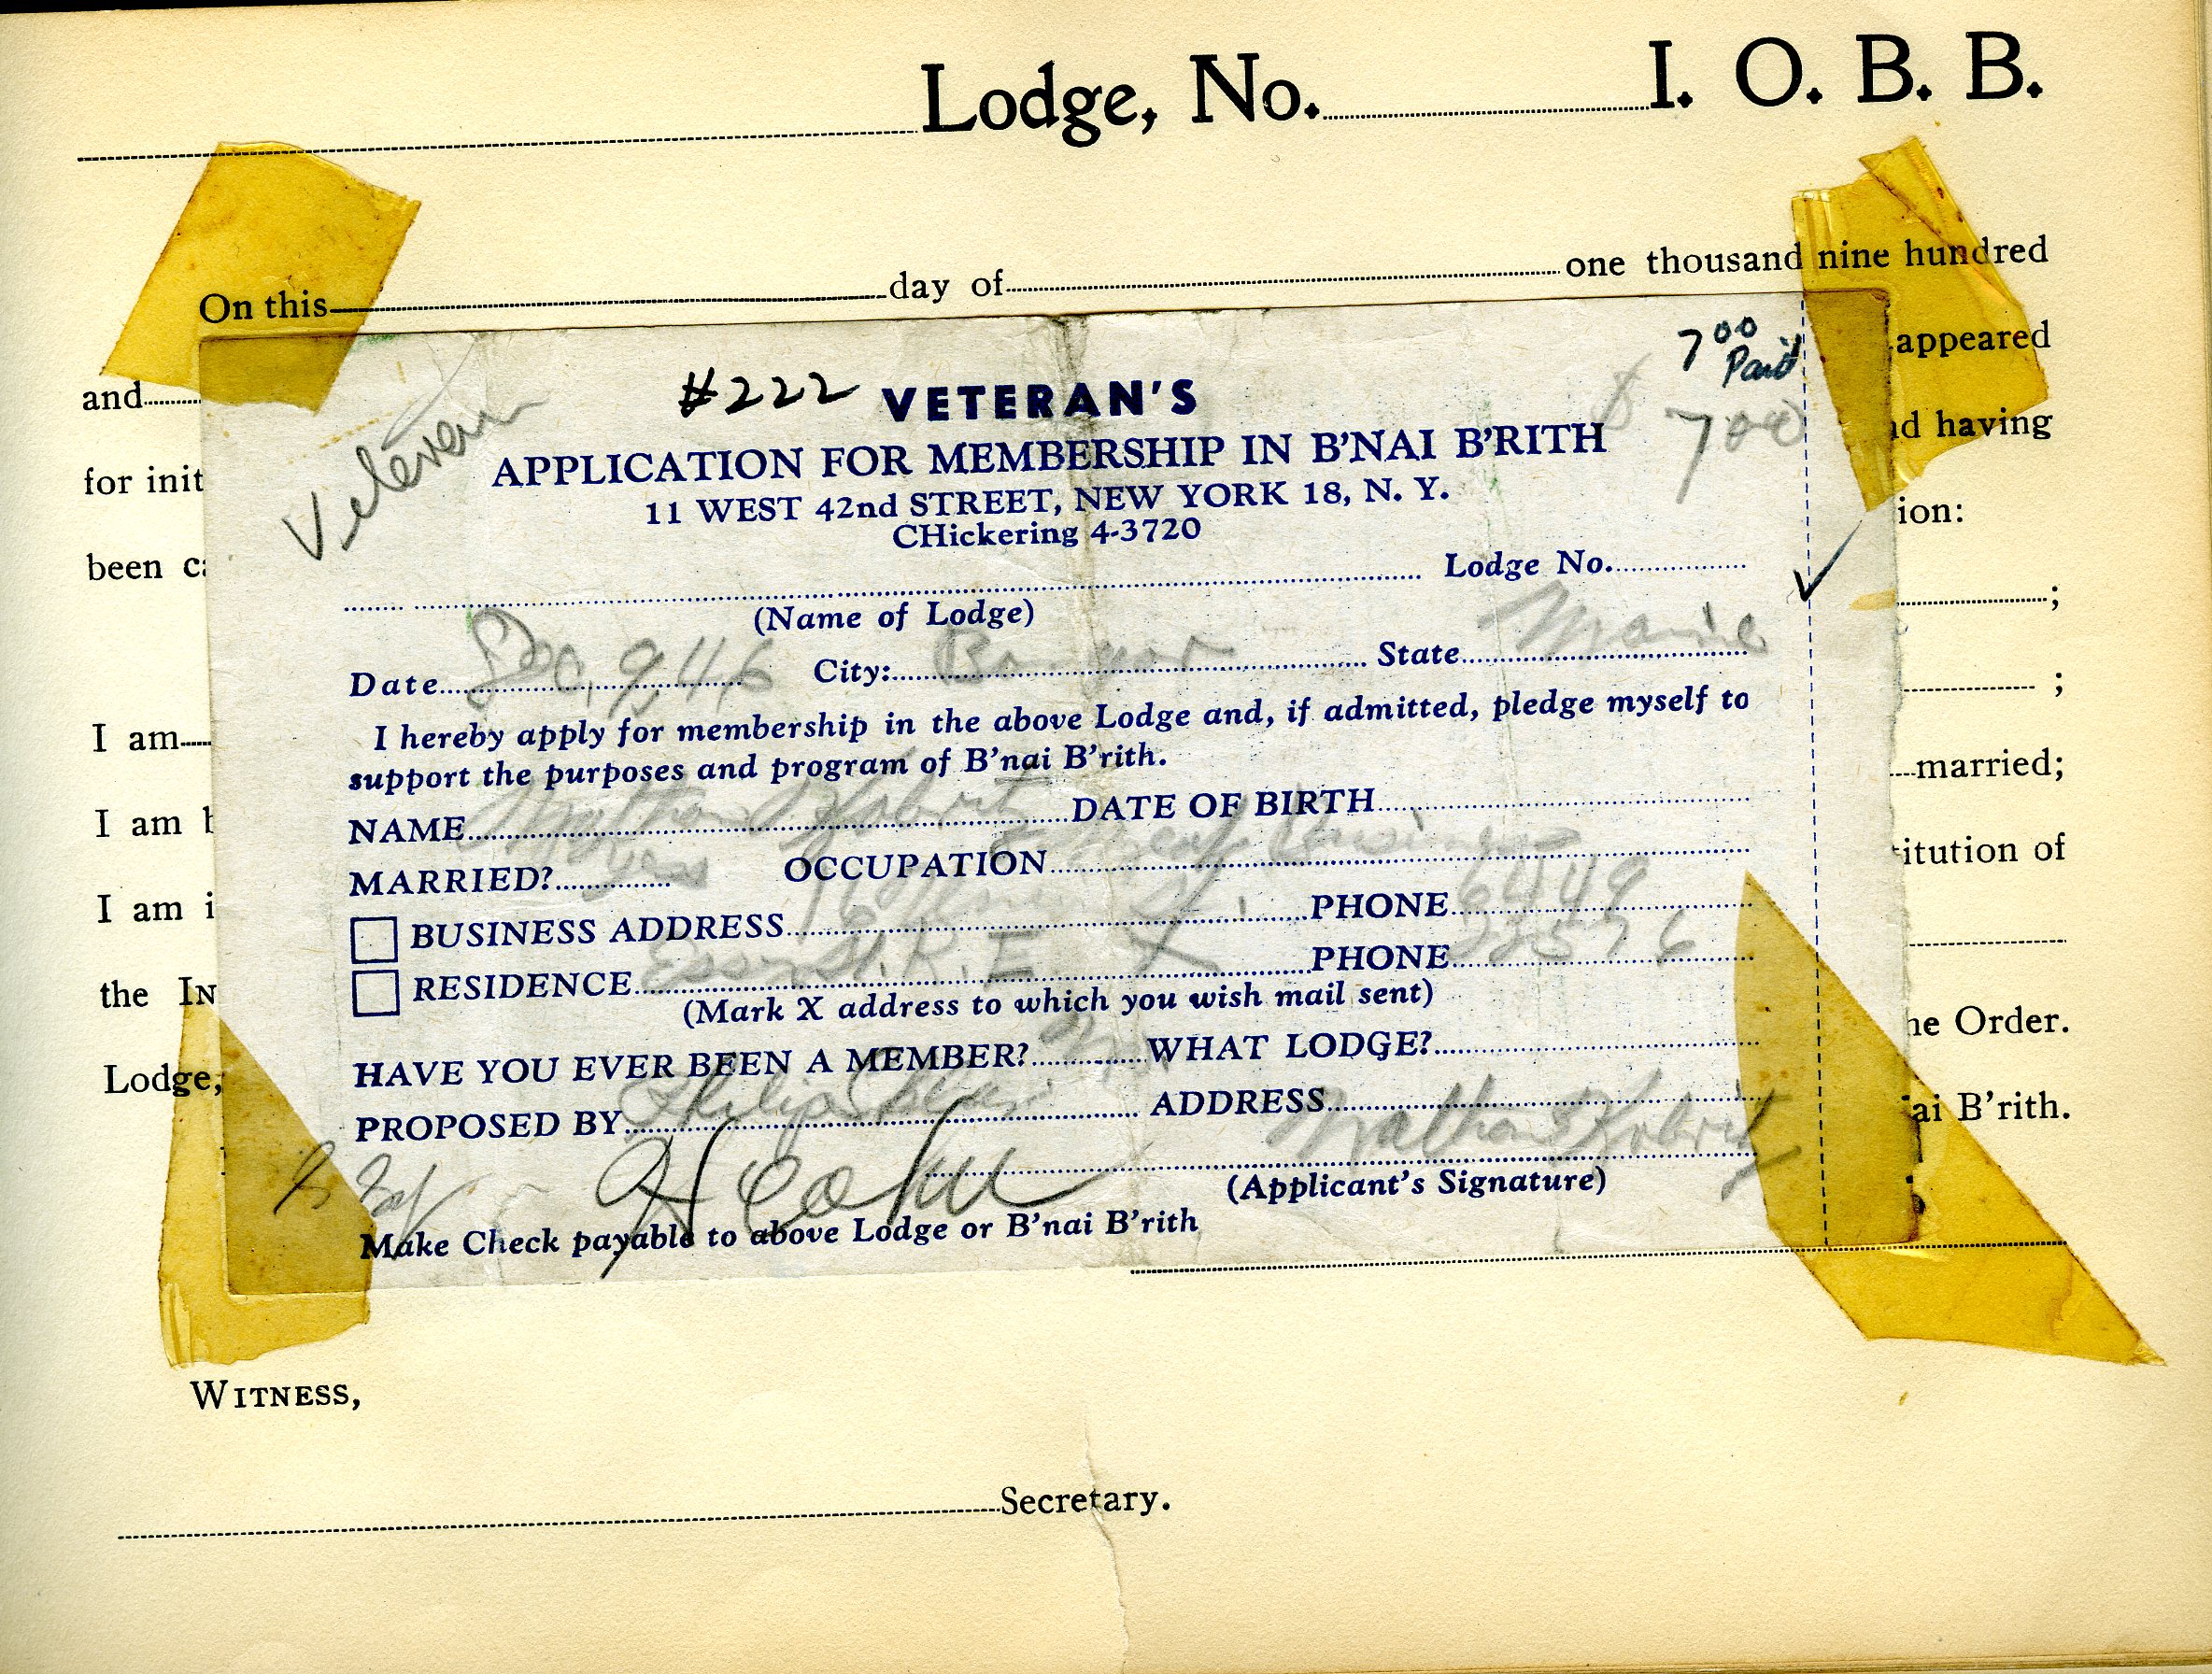 Lodge, No. I. O. B. B.
On this day of one thousand nine hundred
and appeared
for init d having
been ca ion:
;
;
I am married;
I am b
I am i titution of
the IN
he Order.
Lodge, ai B'rith.
Veteran
7 00
Paid
$ 7 00
#222 VETERAN'S
APPLICATION FOR MEMBERSHIP IN B'NAI B'RITH
11 WEST 42nd STREET, NEW YORK 18, N. Y.
CHickering 4-3720
Lodge No.
(Name of Lodge)
Date Dec, 9, 46 City: Bangor State Maine
I hereby apply for membership in the above Lodge and, if admitted, pledge myself to
support the purposes and program of B'nai B'rith.
NAME Nathan Kobritz DATE OF BIRTH
MARRIED? yes OCCUPATION
BUSINESS ADDRESS St. PHONE 6449
RESIDENCE Essex St. R. E X PHONE 22576
(Mark X address to which you wish mail sent)
HAVE YOU EVER BEEN A MEMBER? WHAT LODGE?
PROPOSED BY Philip ADDRESS
Nathan S Kobritz
(Applicant's Signature)
Make Check payable to above Lodge or B'nai B'rith
WITNESS,
Secretary.